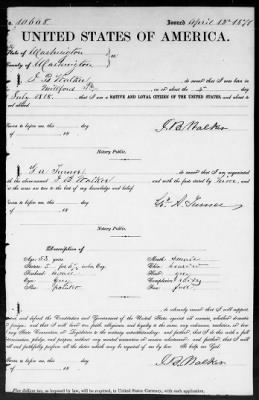 No. 10608 Issued April 12th 1871
UNITED STATES OF AMERICA.
State of Washington
County of Washington } ss:
I, J. B. Walker do swear that I was born in
Milford Pa. on or about the 5 day
of July 1818, that I am a NATIVE AND LOYAL CITIZEN OF THE UNITED STATES and about to
travel abroad.
Sworn to before me, this day
of 18
J. B. Walker
Notary Public.
I, Turner am acquainted
with the above named J. B. Walker and with the facts stated by
is the same are true to the best of my knowledge and belief.
Sworn to before me, this day
of 18
A. Turner
Notary Public.
Description of
Age: 53 years
Stature: 5 feet, inches, Eng.
Forehead:
Eyes: Grey
Nose:
Mouth:
Chin:
Hair: grey
Complexion:
Face: full
I, do solemnly swear that I will support,
protect and defend the Constitution and Government of the United States against all enemies, whether domestic
or foreign; and that I will bear true faith, allegiance and loyalty to the same, any ordinance, resolution or law
of any State Convention or Legislature to the contrary notwithstanding; and further, that I do this with a full
determination, pledge, and purpose, without any mental reservation or evasion whatsoever; and further, that I will
well and faithfully perform all the duties which may be required of me by law. So help me God.
Sworn to before me, this day
of 18
J. B. Walker
Notary Public.
Five dollars tax, as imposed by law, will be required, in United States Currency, with each application.